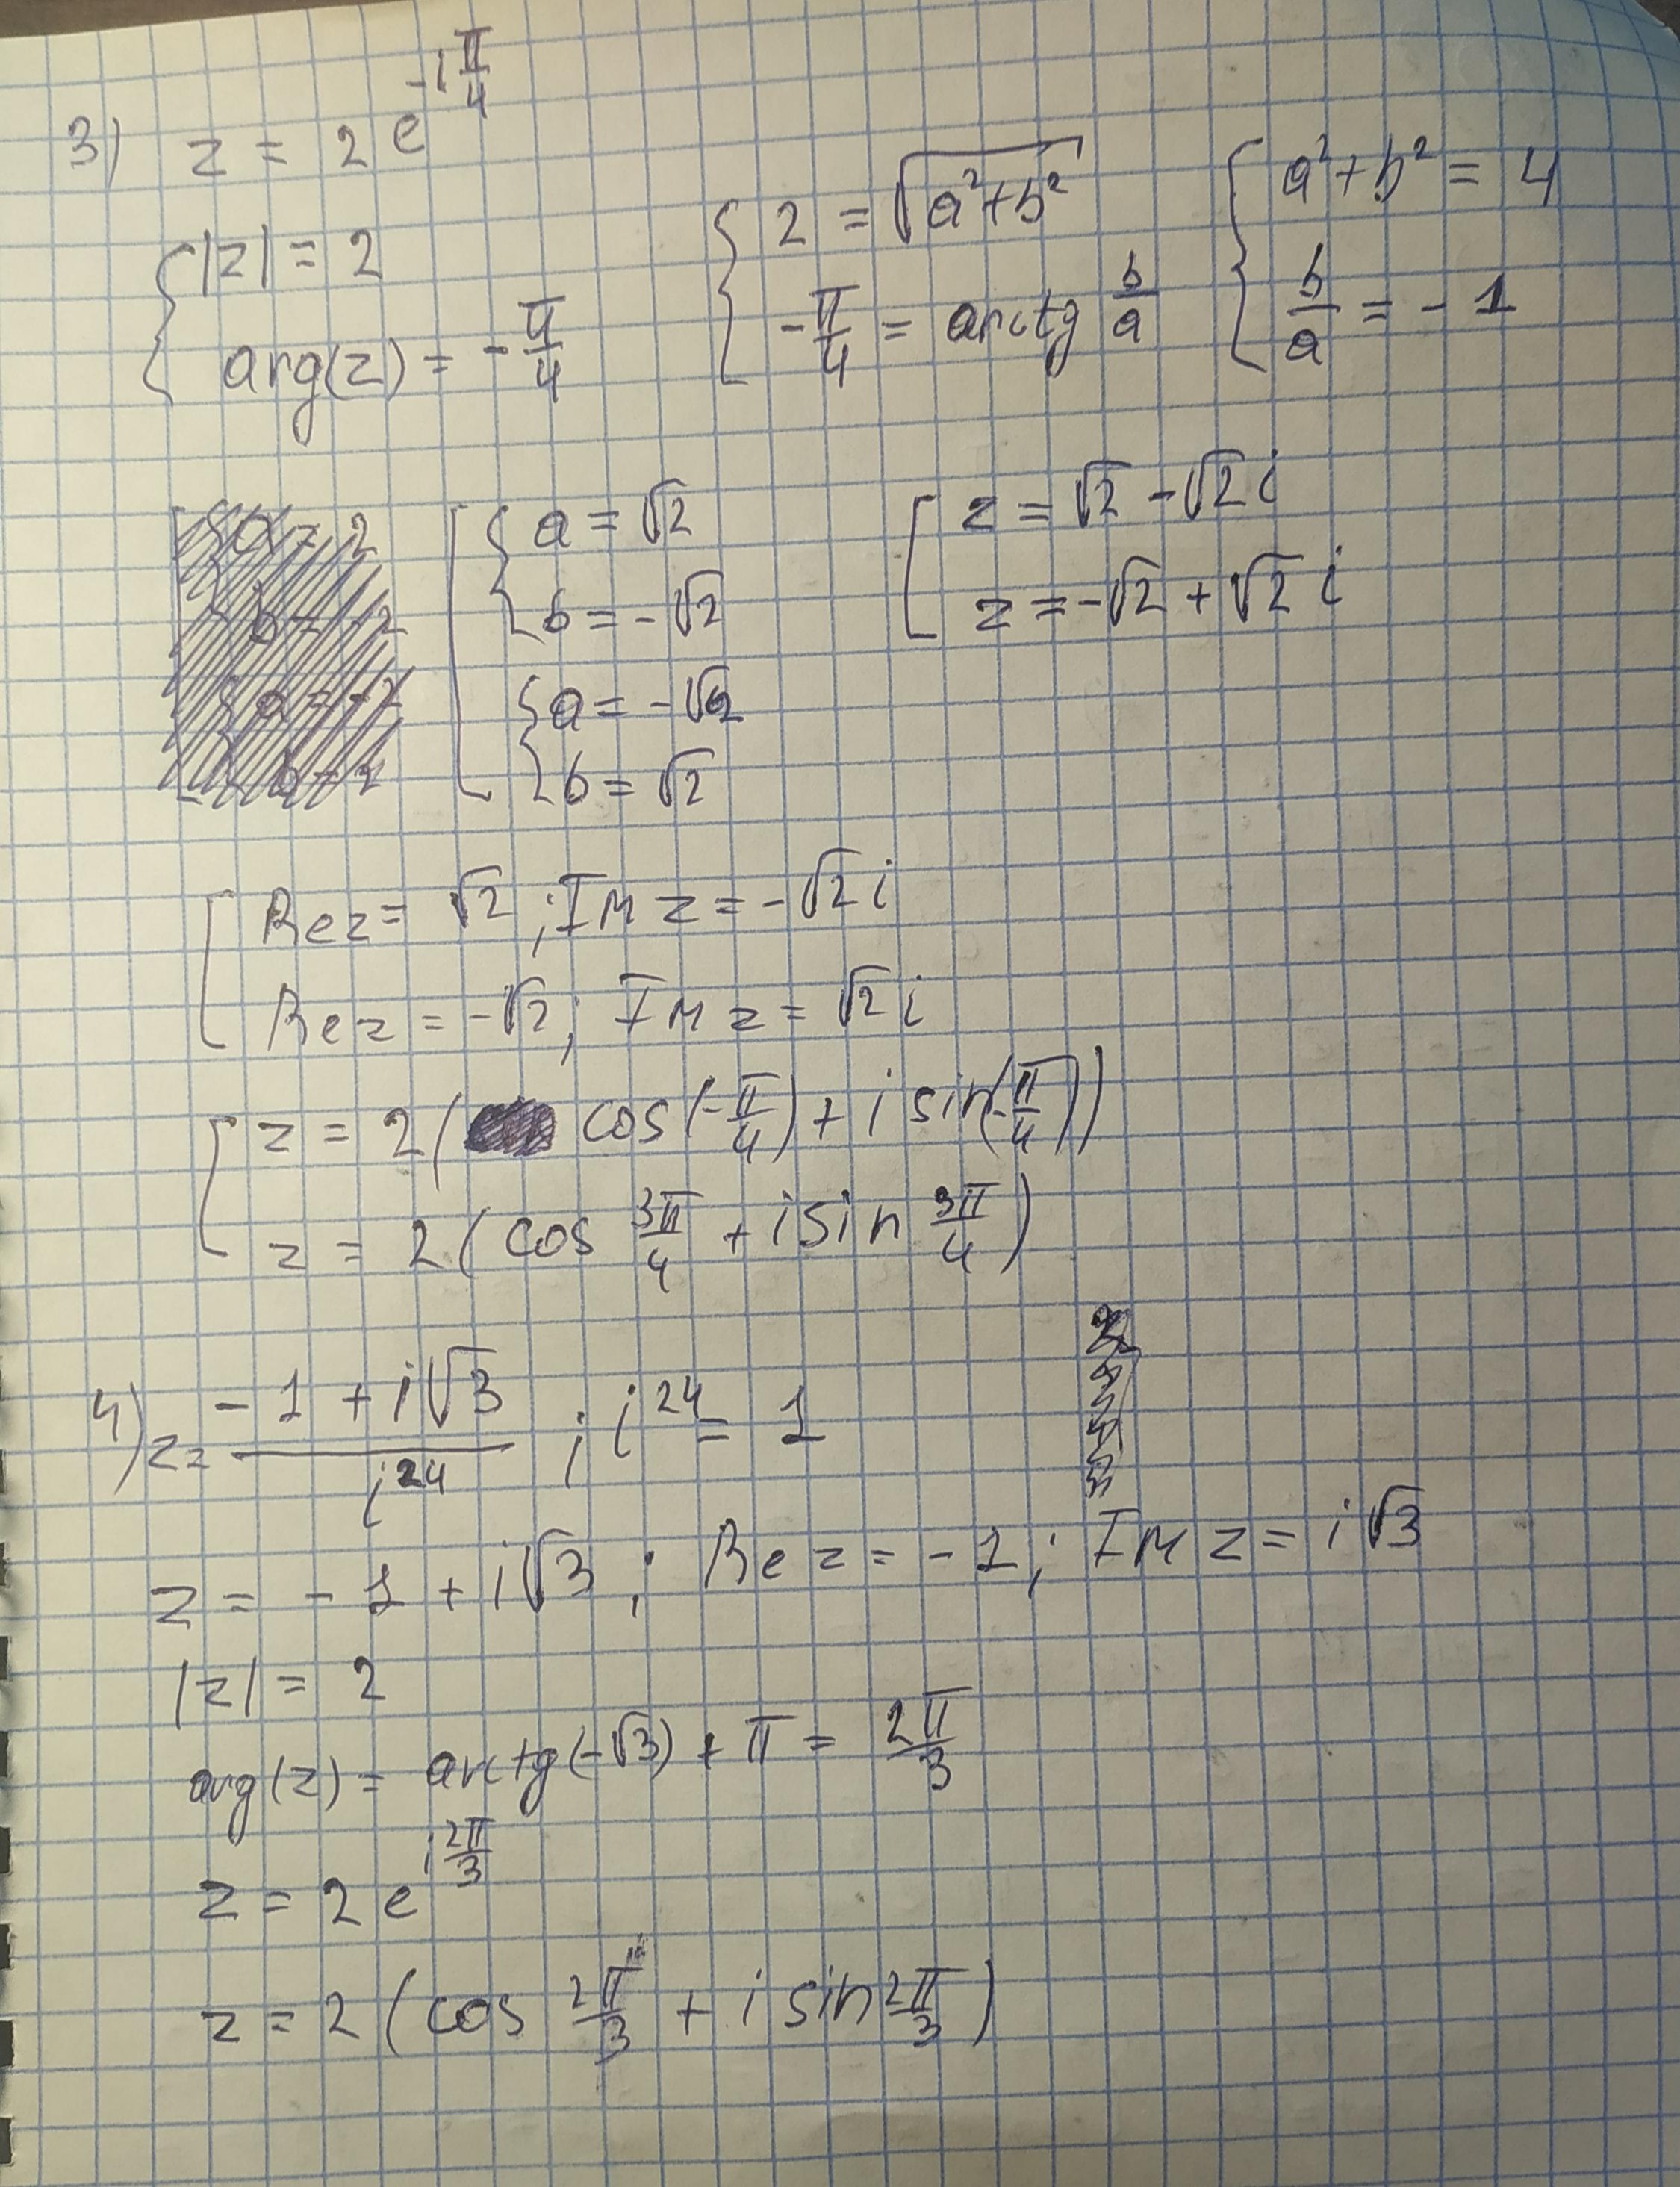 3) z = 2 e^{-i π/4}
{ |z| = 2 { 2 = √(a²+b²) { a²+b² = 4
arg(z) = -π/4 -π/4 = arctg b/a b/a = -1
[ { a = √2 [ z = √2 - √2 i
b = -√2 z = -√2 + √2 i
{ a = -√2
b = √2
[ Re z = √2 ; Im z = -√2 i
Re z = -√2 ; Im z = √2 i
[ z = 2( cos(-π/4) + i sin(-π/4))
z = 2 (cos 3π/4 + i sin 3π/4)
4) z = (-1 + i√3)/i^{24} ; i^{24} = 1
z = -1 + i√3 ; Re z = -1 ; Im z = i√3
|z| = 2
arg(z) = arctg(-√3) + π = 2π/3
z = 2 e^{i 2π/3}
z = 2 (cos 2π/3 + i sin 2π/3)